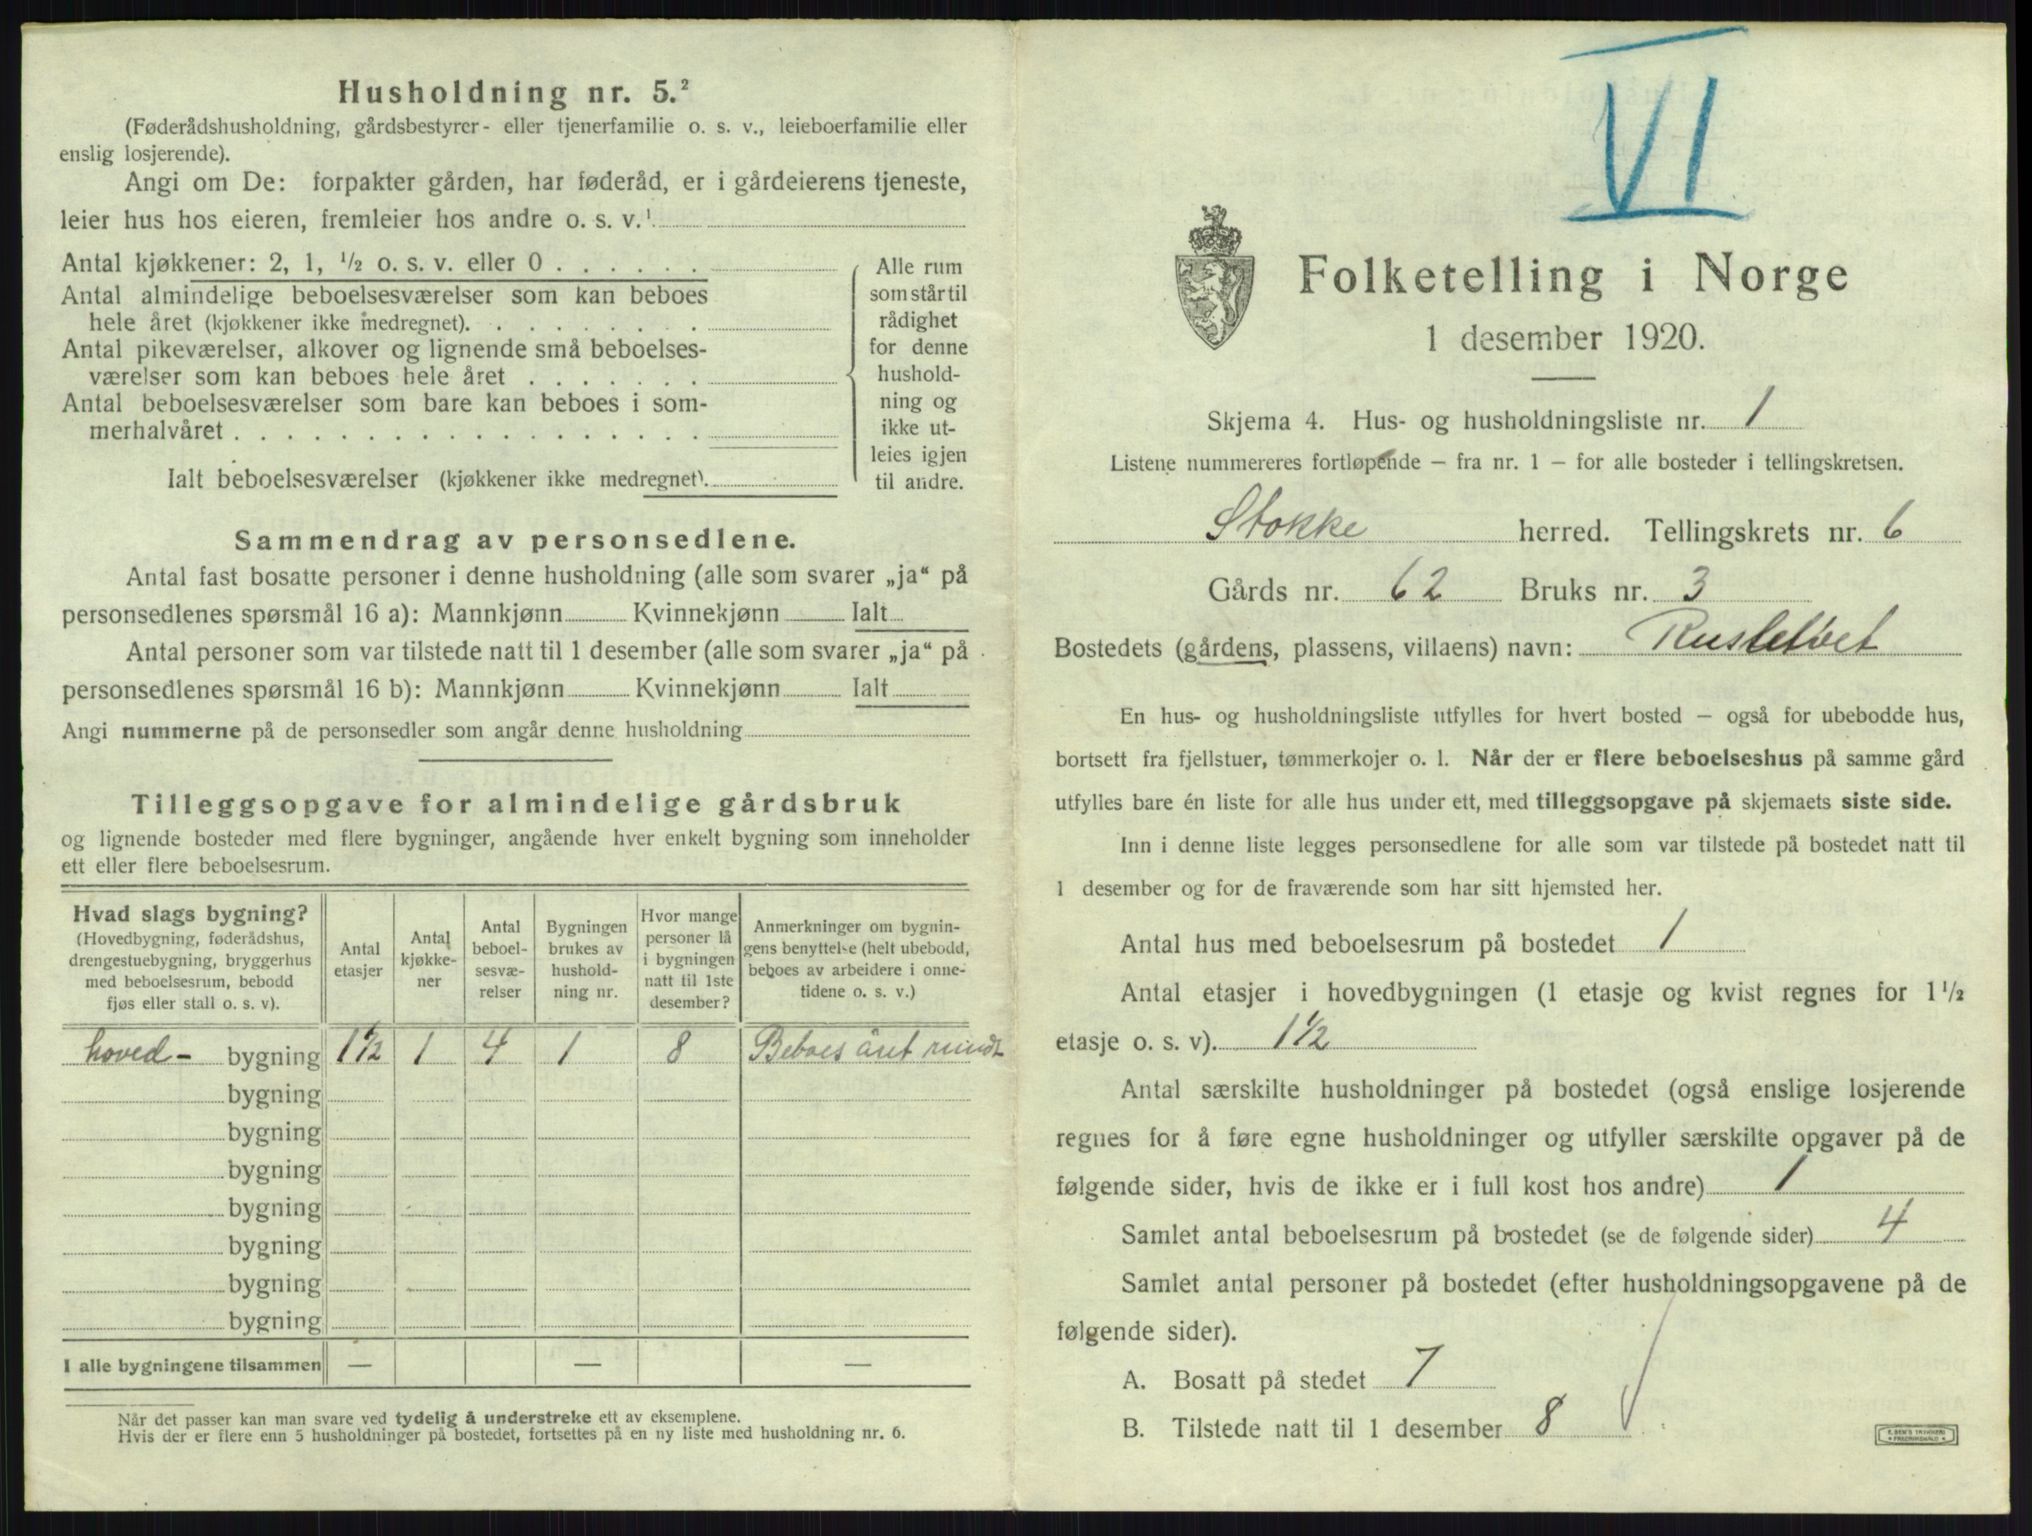 Husholdning nr. 5.²
(Føderådshusholdning, gårdsbestyrer- eller tjenerfamilie o. s. v., leieboerfamilie eller
enslig losjerende).
Angi om De: forpakter gården, har føderåd, er i gårdeierens tjeneste,
leier hus hos eieren, fremleier hos andre o. s. v.¹
Antal kjøkkener: 2, 1, ½ o. s. v. eller 0 . . . . . .
Antal almindelige beboelsesværelser som kan beboes
hele året (kjøkkener ikke medregnet). . . . . . . . .
Antal pikeværelser, alkover og lignende små beboelses-
værelser som kan beboes hele året . . . . . . .
Antal beboelsesværelser som bare kan beboes i som-
merhalvåret . . . . . . . . . . . . . . . . . .
Ialt beboelsesværelser (kjøkkener ikke medregnet).
Alle rum
som står til
rådighet
for denne
hushold-
ning og
ikke ut-
leies igjen
til andre.
Sammendrag av personsedlene.
Antal fast bosatte personer i denne husholdning (alle som svarer „ja“ på
personsedlenes spørsmål 16 a): Mannkjønn Kvinnekjønn Ialt
Antal personer som var tilstede natt til 1 desember (alle som svarer „ja“ på
personsedlenes spørsmål 16 b): Mannkjønn Kvinnekjønn Ialt
Angi nummerne på de personsedler som angår denne husholdning
Tilleggsopgave for almindelige gårdsbruk
og lignende bosteder med flere bygninger, angående hver enkelt bygning som inneholder
ett eller flere beboelsesrum.
Hvad slags bygning?
(Hovedbygning, føderådshus,
drengestuebygning, bryggerhus
med beboelsesrum, bebodd
fjøs eller stall o. s. v).
Antal
etasjer
Antal
kjøkke-
ner
Antal
beboel-
sesvæ-
relser
Bygningen
brukes av
hushold-
ning nr.
Hvor mange
personer lå
i bygningen
natt til 1ste
desember?
Anmerkninger om bygnin-
gens benyttelse (helt ubebodd,
beboes av arbeidere i onne-
tidene o. s. v.)
hoved- bygning 1½ 1 4 1 8 Beboes året rundt
bygning
bygning
bygning
bygning
bygning
bygning
bygning
I alle bygningene tilsammen — — —
Når det passer kan man svare ved tydelig å understreke ett av eksemplene.
Hvis der er flere enn 5 husholdninger på bostedet, fortsettes på en ny liste med husholdning nr. 6.
VI
Folketelling i Norge
1 desember 1920.
Skjema 4. Hus- og husholdningsliste nr. 1
Listene nummereres fortløpende — fra nr. 1 — for alle bosteder i tellingskretsen.
Stokke herred. Tellingskrets nr. 6
Gårds nr. 62 Bruks nr. 3
Bostedets (gårdens, plassens, villaens) navn:
En hus- og husholdningsliste utfylles for hvert bosted — også for ubebodde hus,
bortsett fra fjellstuer, tømmerkojer o. l. Når der er flere beboelseshus på samme gård
utfylles bare én liste for alle hus under ett, med tilleggsopgave på skjemaets siste side.
Inn i denne liste legges personsedlene for alle som var tilstede på bostedet natt til
1 desember og for de fraværende som har sitt hjemsted her.
Antal hus med beboelsesrum på bostedet 1
Antal etasjer i hovedbygningen (1 etasje og kvist regnes for 1½
etasje o. s. v). 1½
Antal særskilte husholdninger på bostedet (også enslige losjerende
regnes for å føre egne husholdninger og utfyller særskilte opgaver på de
følgende sider, hvis de ikke er i full kost hos andre) 1
Samlet antal beboelsesrum på bostedet (se de følgende sider) 4
Samlet antal personer på bostedet (efter husholdningsopgavene på de
følgende sider).
A. Bosatt på stedet 7
B. Tilstede natt til 1 desember 8